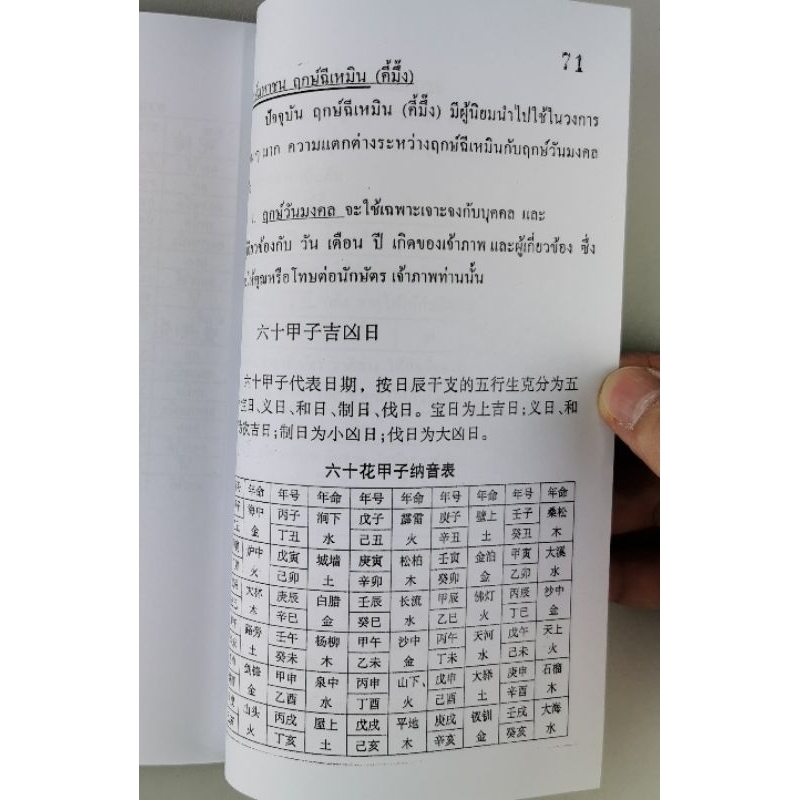 71
ฤกษ์ฉีเหมิน (คี้มึ้ง)
ปัจจุบัน ฤกษ์ฉีเหมิน (คี้มึ้ง) มีผู้นิยมนำไปใช้ในวงการ
มาก ความแตกต่างระหว่างฤกษ์ฉีเหมินกับฤกษ์วันมงคล
ฤกษ์วันมงคล จะใช้เฉพาะเจาะจงกับบุคคล และ
วัน เดือน ปี เกิดของเจ้าภาพ และผู้เกี่ยวข้อง ซึ่ง
ให้คุณหรือโทษต่อนักษัตร เจ้าภาพท่านนั้น
六十甲子吉凶日
六十甲子代表日期，按日辰干支的五行生克分为五
宝日、义日、和日、制日、伐日。宝日为上吉日；义日、和
次吉日；制日为小凶日；伐日为大凶日。
六十花甲子纳音表
年命 年号 年命 年号 年命 年号 年命 年号 年命
海中 丙子 涧下 戊子 霹雷 庚子 壁上 壬子 桑松
金 丁丑 水 己丑 火 辛丑 土 癸丑 木
炉中 戊寅 城墙 庚寅 松柏 壬寅 金泊 甲寅 大溪
火 己卯 土 辛卯 木 癸卯 金 乙卯 水
大林 庚辰 白腊 壬辰 长流 甲辰 佛灯 丙辰 沙中
木 辛巳 金 癸巳 水 乙巳 火 丁巳 金
路旁 壬午 杨柳 甲午 沙中 丙午 天河 戊午 天上
土 癸未 木 乙未 金 丁未 水 己未 火
剑锋 甲申 泉中 丙申 山下 戊申 大驿 庚申 石榴
金 乙酉 水 丁酉 火 己酉 土 辛酉 木
山头 丙戌 屋上 戊戌 平地 庚戌 钗钏 壬戌 大海
火 丁亥 土 己亥 木 辛亥 金 癸亥 水